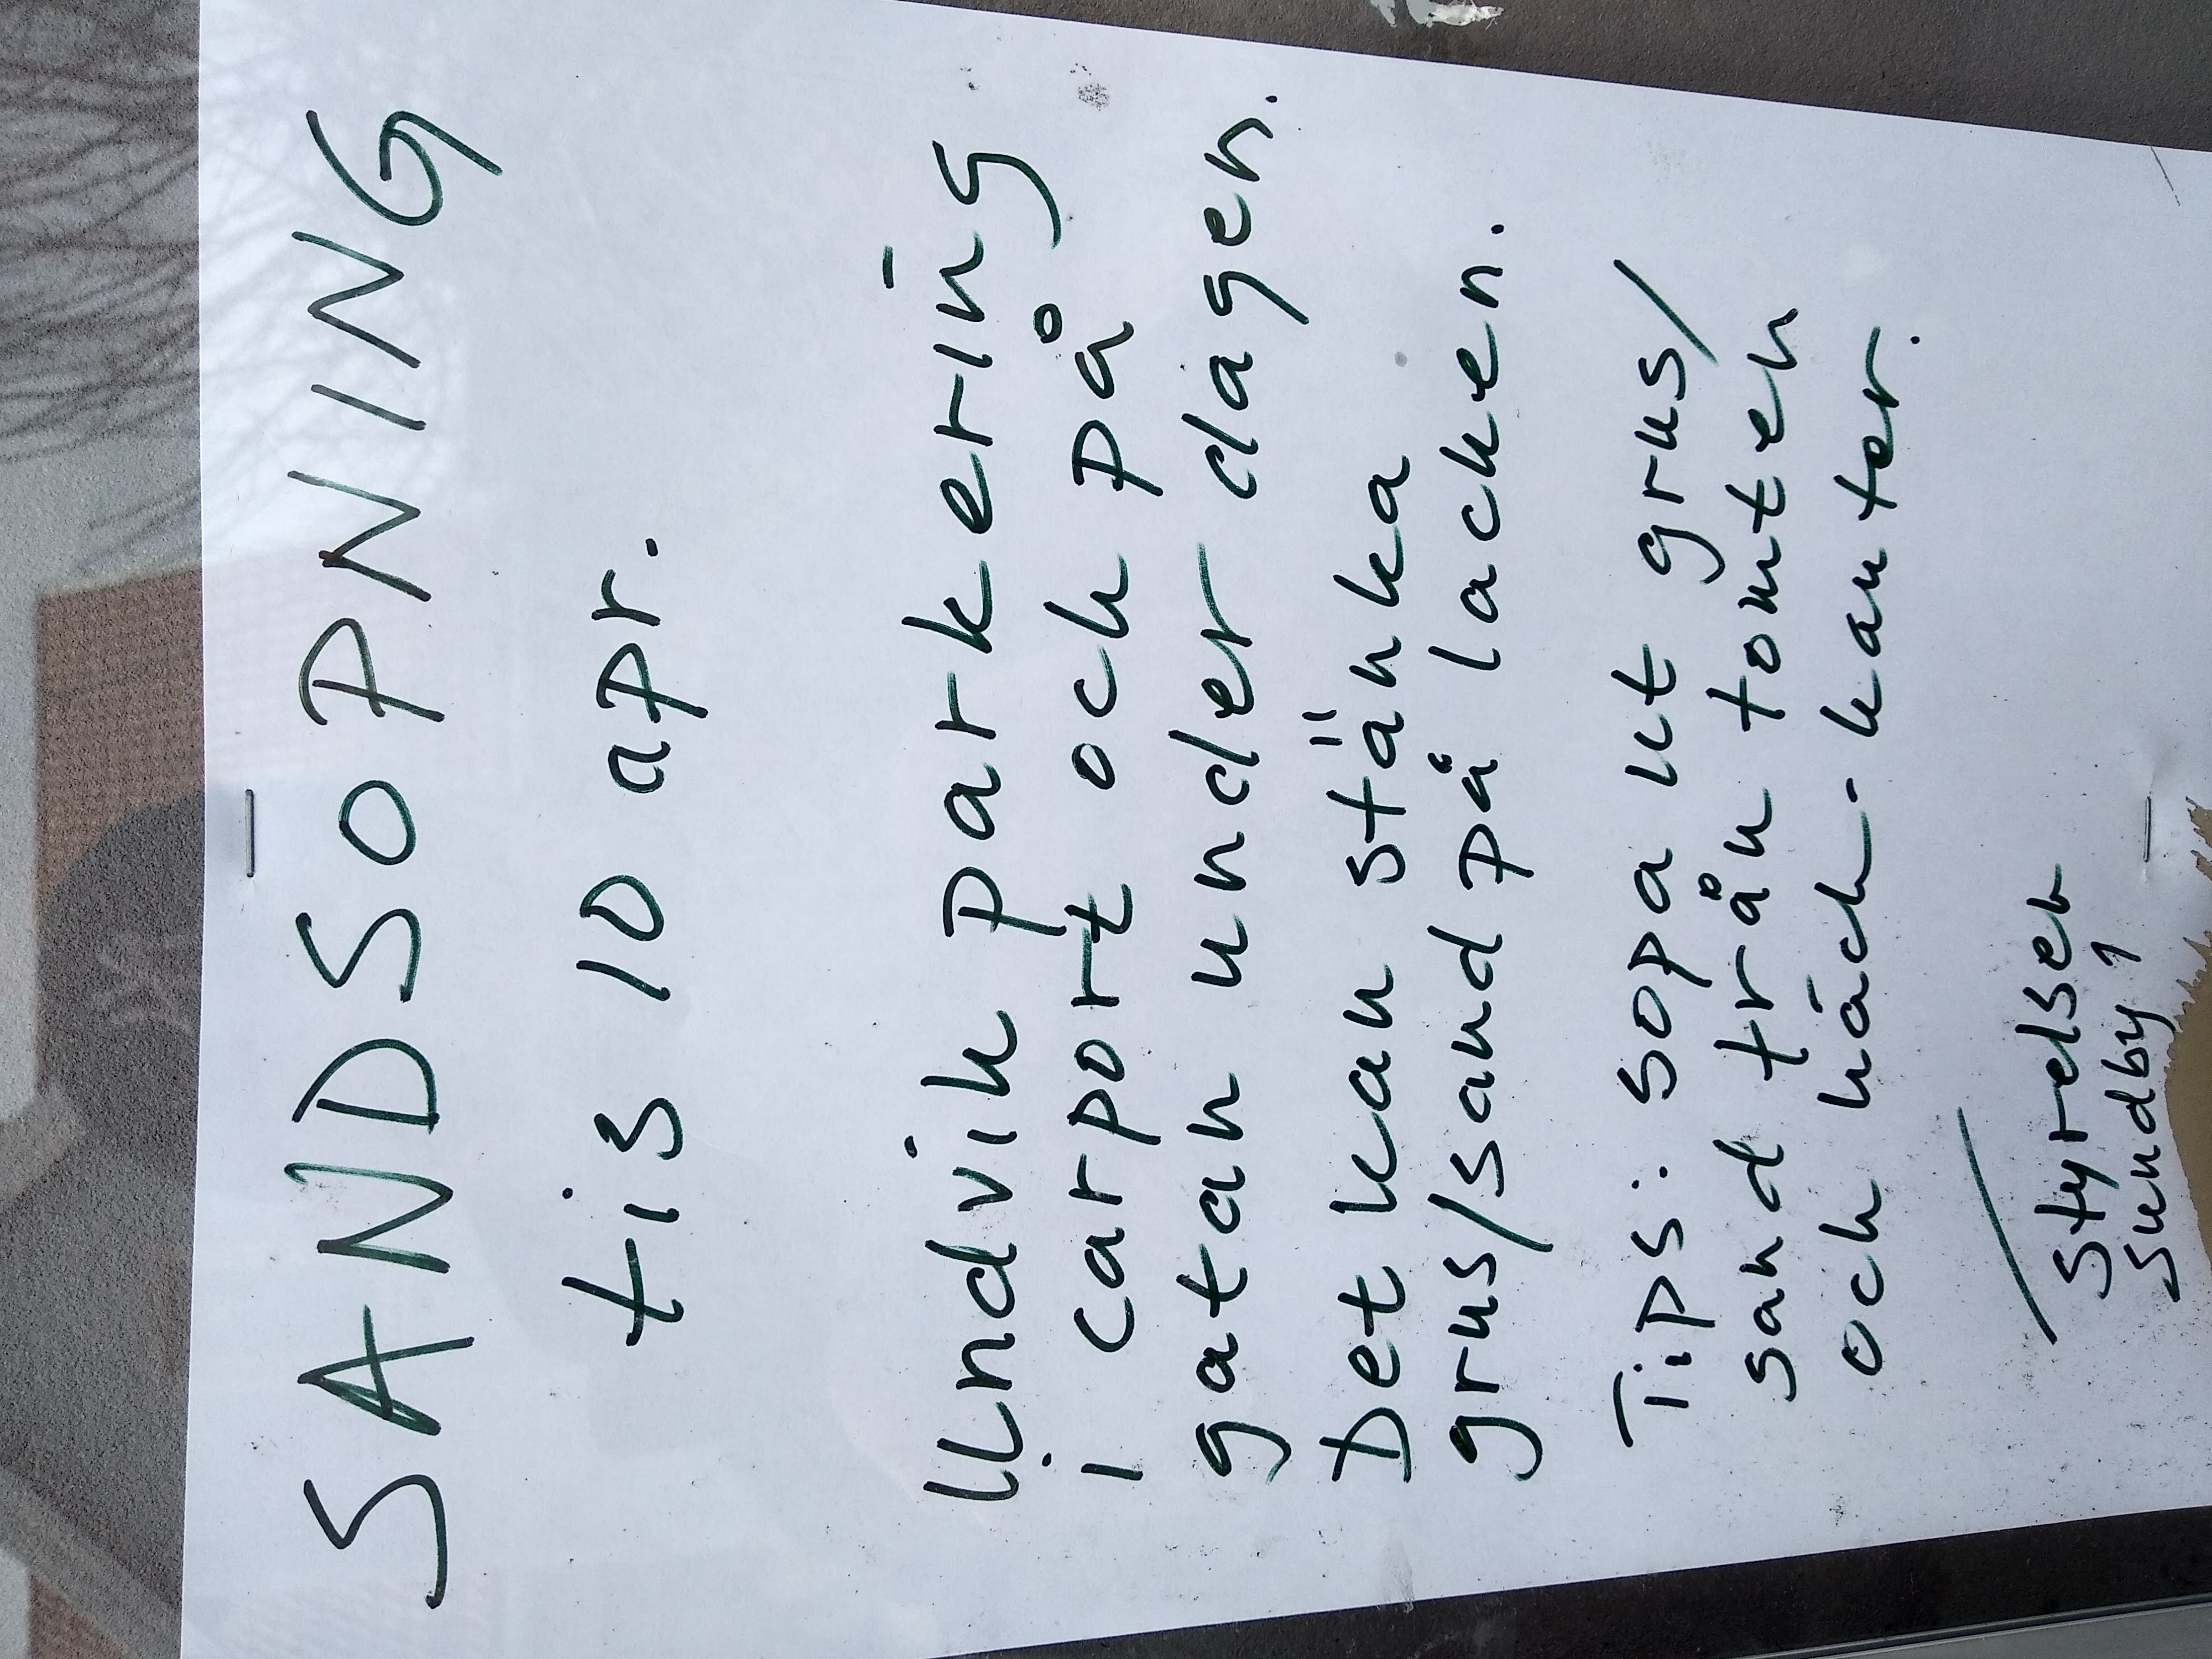 SANDSOPNING
tis 10 apr.
Undvik parkering
i carport och på
gatan under dagen.
Det kan stänka
grus/sand på lacken.
Tips: sopa ut grus/
sand från tomten
och häck-kanter.
/
Styrelsen
Sundby 1